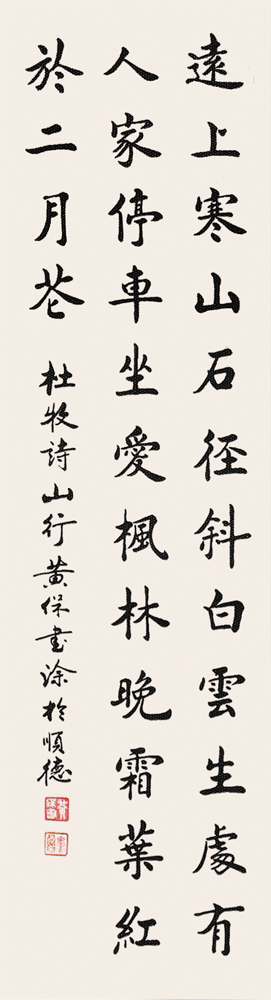 遠上寒山石徑斜白雲生處有
人家停車坐愛楓林晚霜葉紅
於二月花
杜牧詩山行黃保書涂於順德